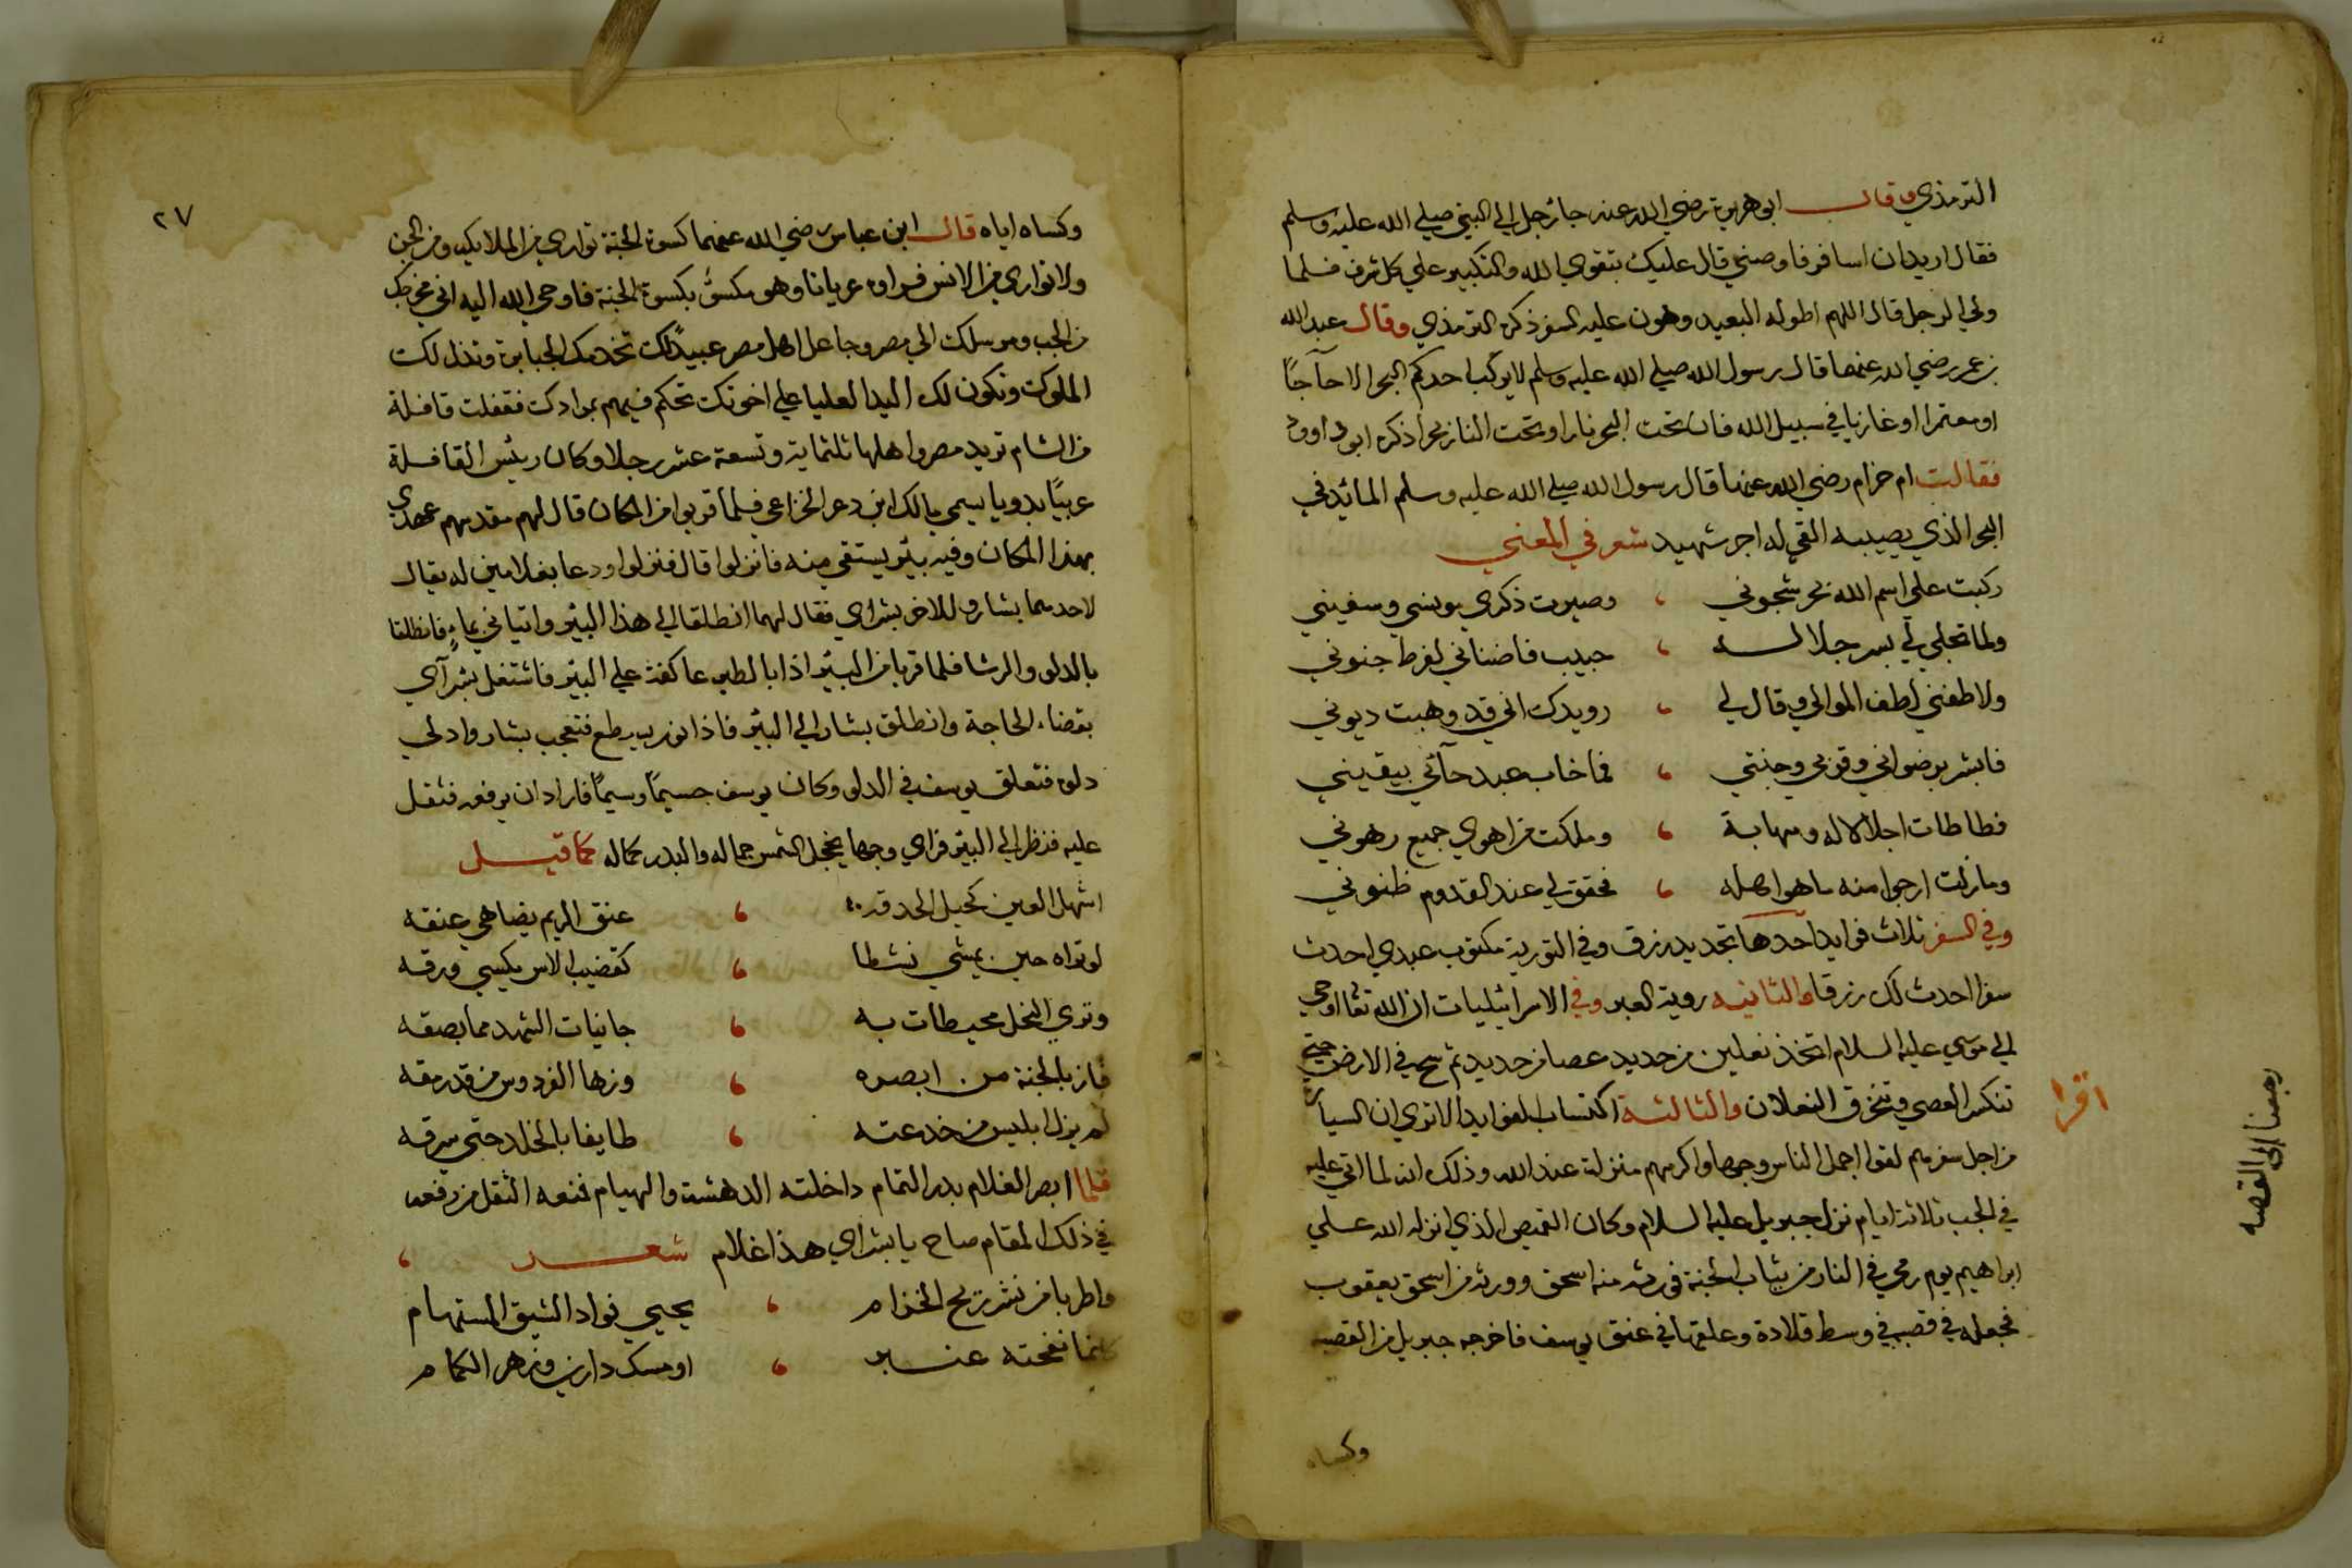 الترمذي وقال ابو هريرة رضي الله عنه جا رجل الي النبي صلي الله عليه وسلم
فقال اريد ان اسافر فاوصني قال عليك بتقوي الله والتكبير علي كل شرف فلما
ولي الرجل قال اللهم اطو له البعيد وهون عليه السفر ذكره الترمذي وقال عبد الله
بن عمر رضي الله عنهما قال رسول الله صلي الله عليه وسلم لا يركب احدكم البحر الا حآجًا
او معتمرا او غازيا في سبيل الله فان تحت البحر نارا وتحت النار بحرا ذكره ابو داوود
فقالت ام حزام رضي الله عنها قال رسول الله صلي الله عليه وسلم المائد في
البحر الذي يصيبه القي له اجر شهيد شعر في المعني
ركبت علي اسم الله بحر شجوني ، وصيرت ذكري مونسي وسفيني
ولما تجلي لي بسر جلاله ، حبيب فاضناني لفرط جنوني
ولاطفني لطف الموالي وقال لي ، رويدك اني قد وهبت ديوني
فابشر برضواني وقربي وجنتي ، فما خاب عبد جآئي بيقيني
فطاطات اجلالا له ومهابة ، وملكت من اهوي جميع رهوني
وما زلت ارجوا منه ما هو اهله ، فحقق لي عند القدوم ظنوني
وفي السفر ثلاث فوايد احدها تجديد رزق وفي التورية مكتوب عبدي احدث
سفرا احدث لك رزقا والثانيه روية العبر وفي الاسرائيليات ان الله تعالي اوحي
الي موسي عليه السلام اتخذ نعلين من حديد عصا من حديد ثم سح في الارض حتي
تنكسر العصي وتتخرق النعلان والثالثة اكتساب الفوايد الا تري ان السيارة
من اجل سفرهم لقوا اجمل الناس وجها واكرمهم منزلة عند الله وذلك انه لما اتي عليه
في الجب ثلاثة ايام نزل جبريل عليه السلام وكان القميص الذي انزله الله علي
ابراهيم يوم رمي في النار من ثياب الجنة فورثه منه اسحق وورثه من اسحق يعقوب
فجعله في قصبه في وسط قلادة وعلقها في عنق يوسف فاخرجه جبريل من القصبه
وكساه
اقرا
رجعنا الى القصه
٢٧
وكساه اياه قال ابن عباس رضي الله عنهما كسوة الجنة تواري من الملايكه ومن الجن
ولا تواري من الانس فراوه عريانا وهو مكسوٌ بكسوة الجنة فاوحي الله اليه اني مخرجك
من الجب ومرسلك الي مصر وجاعل اهل مصر عبيدًا لك تخدمك الجبابرة وتذل لك
الملوك وتكون لك اليد العليا علي اخوتك تحكم فيهم بمرادك فقفلت قافلة
من الشام تريد مصر واهلها ثلثماية وتسعة عشر رجلا وكان رئيس القافلة
عربيًا بدويا يسمي مالك ابن دعر الخزاعي فلما قربوا من المكان قال لهم مقدمهم عهدي
بهذا المكان وفيه بئر يستقي منه فانزلوا قال فنزلوا ودعا بغلامين له يقال
لاحدهما بشار وللاخر بشراي فقال لهما انطلقا الي هذا البئر واتياني بماءٍ فانطلقا
بالدلو والرشا فلما قربا من البئر اذا بالطير عاكفة علي البئر فاشتغل بشرآي
بقضاء الحاجة وانطلق بشار الي البئر فاذا نور يسطع فتعجب بشار وادلي
دلوه فتعلق يوسف في الدلو وكان يوسف جسيمًا وسيمًا فاراد ان يرفعه فثقل
عليه فنظر الي البئر فراي وجها يخجل الشمس جماله والبدر كماله كما قيل
اشهل العين كحيل الحدقه ، عنق الريم يضاهي عنقه
لو تراه حين يمشي نشطا ، كقضيب الاس يكسي ورقه
وتري النحل محيطات به ، جانيات الشهد مما بصقه
فاز بالجنة من ابصره ، وزها الفردوس من قد رمقه
لم يزل ابليس من خدعته ، طايفا بالخلد حتي سرقه
فلما ابصر الغلام بدر التمام داخلته الدهشة والهيام فمنعه الثقل من رفعه
في ذلك المقام صاح يا بشراي هذا غلام شعر ،
واطربا من نشر ريح الخزام ، يحيي فواد الشيق المستهام
كانما نفحته عنبر ، او مسك دارين وزهر الكمام